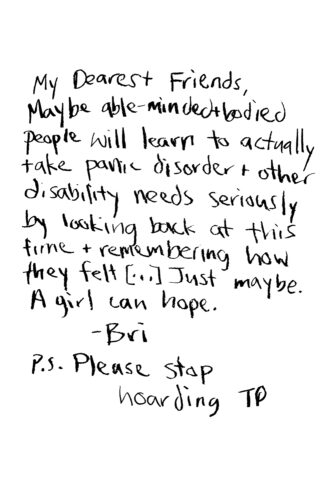 My Dearest Friends,
Maybe able-minded+bodied
people will learn to actually
take panic disorder + other
disability needs seriously
by looking back at this
time + remembering how
they felt [...] Just maybe.
A girl can hope.
-Bri
P.S. Please stop
hoarding TP